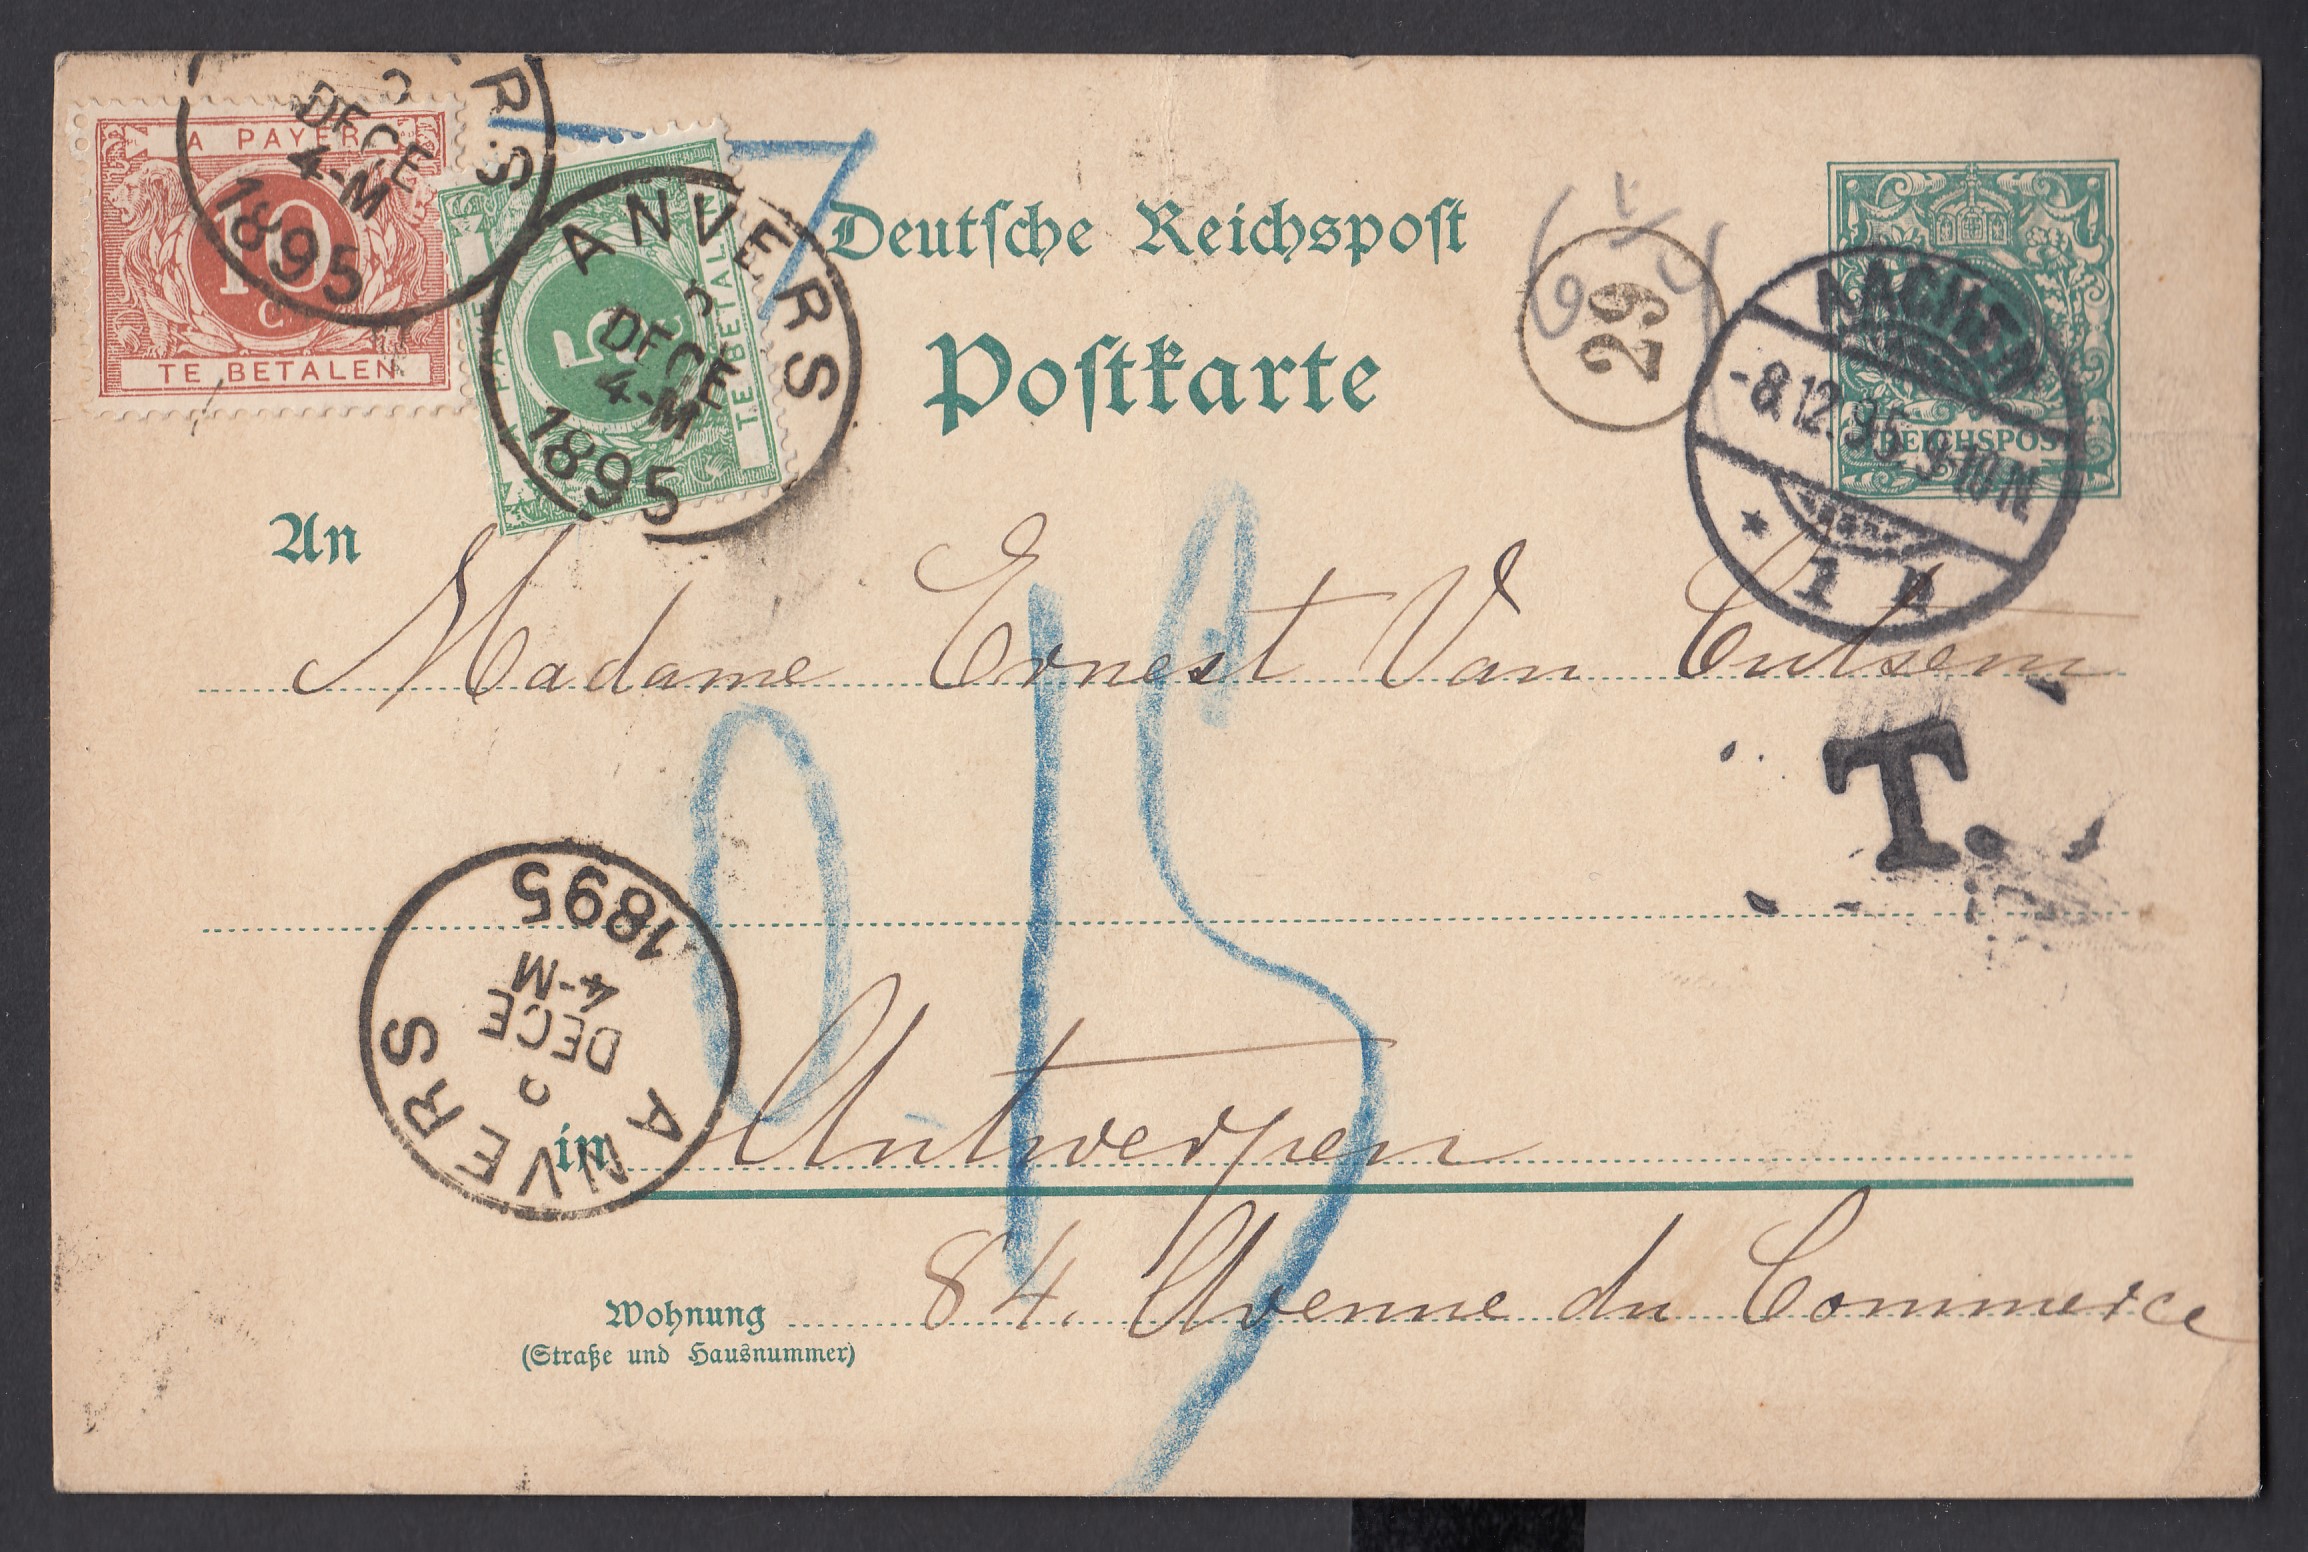 A PAYER
10
c
TE BETALEN
RS
DECE
4-M
1895
A PAYER
5
c
TE BETALEN
ANVERS
DECE
4-M
1895
Deutsche Reichspost
Postkarte
29
REICHSPOST
AACHEN
-8.12.95. 9-10 N.
* 1 h
An
Madame Ernest Van Cutsem
T.
015
ANVERS
DECE
4-M
1895
in Antwerpen
Wohnung 84. Avenue du Commerce
(Straße und Hausnummer)